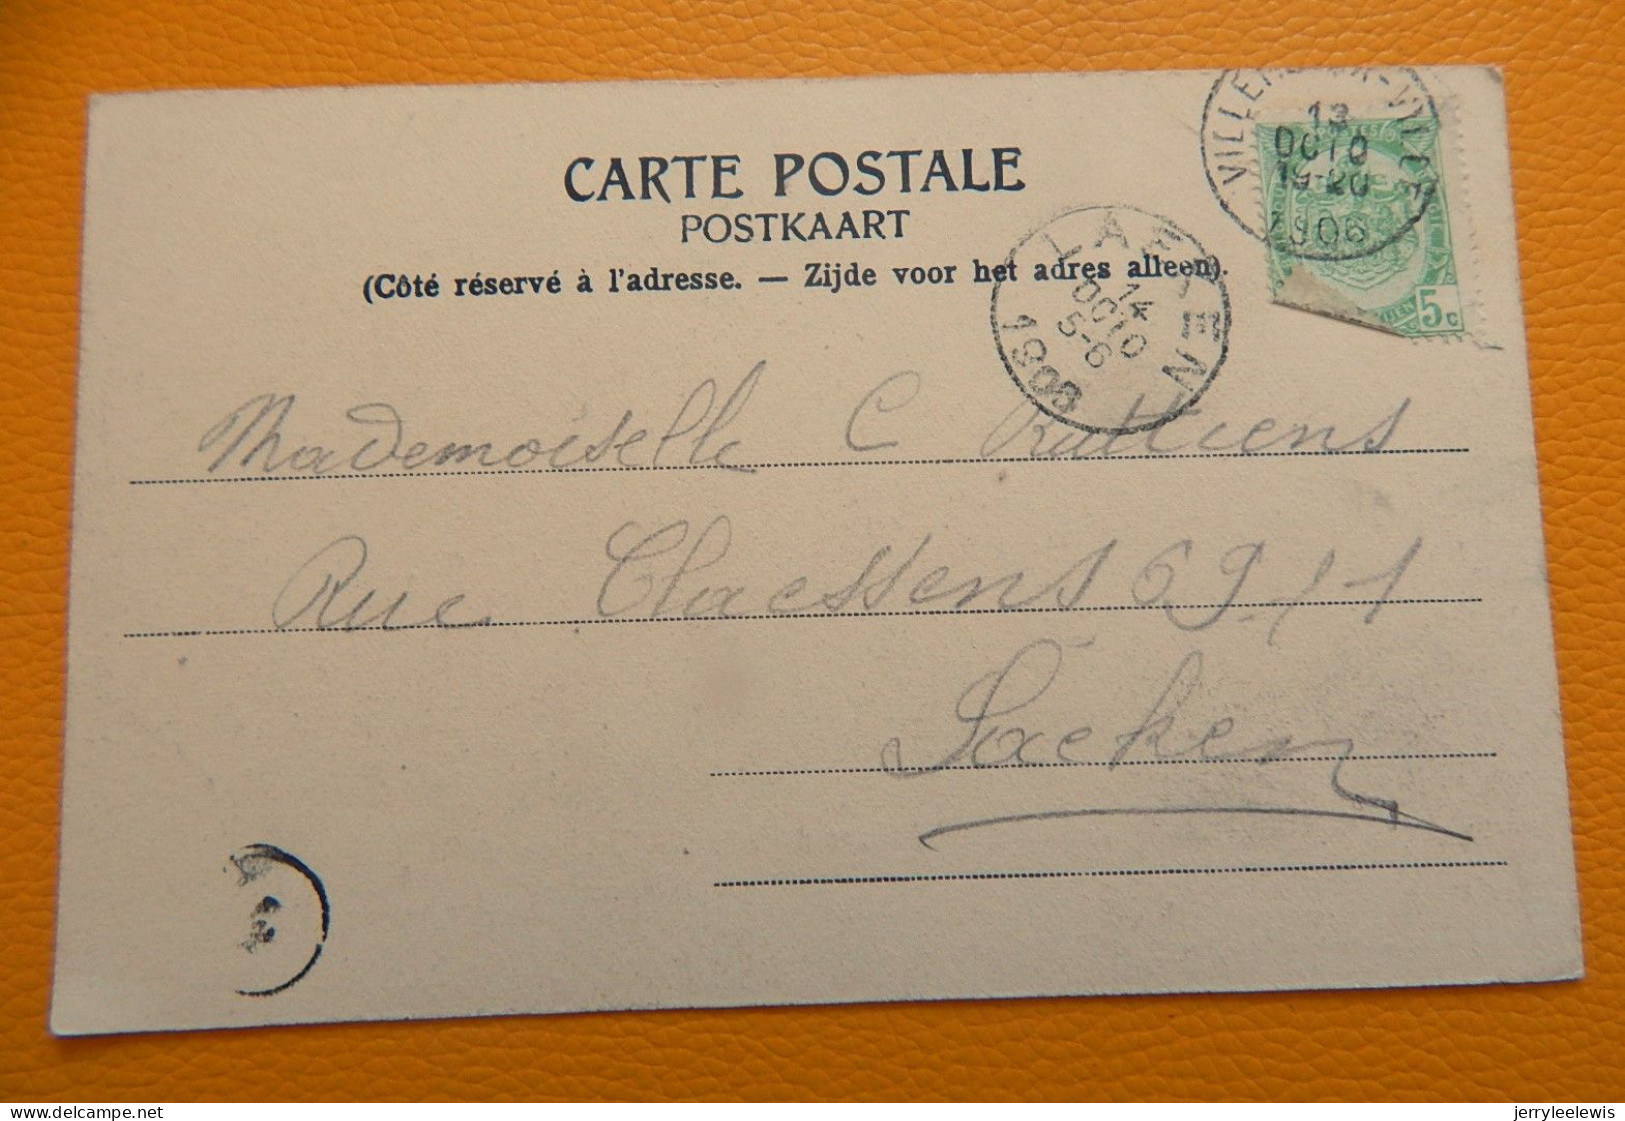 CARTE POSTALE
POSTKAART
(Côté réservé à l'adresse. — Zijde voor het adres alleen).
13
OCTO
19-20
1906
5c
LAEKEN
14
OCTO
5-6
1906
Mademoiselle C Ruttiens
Rue Claessens 69
Laeken
www.delcampe.net
jerryleelewis